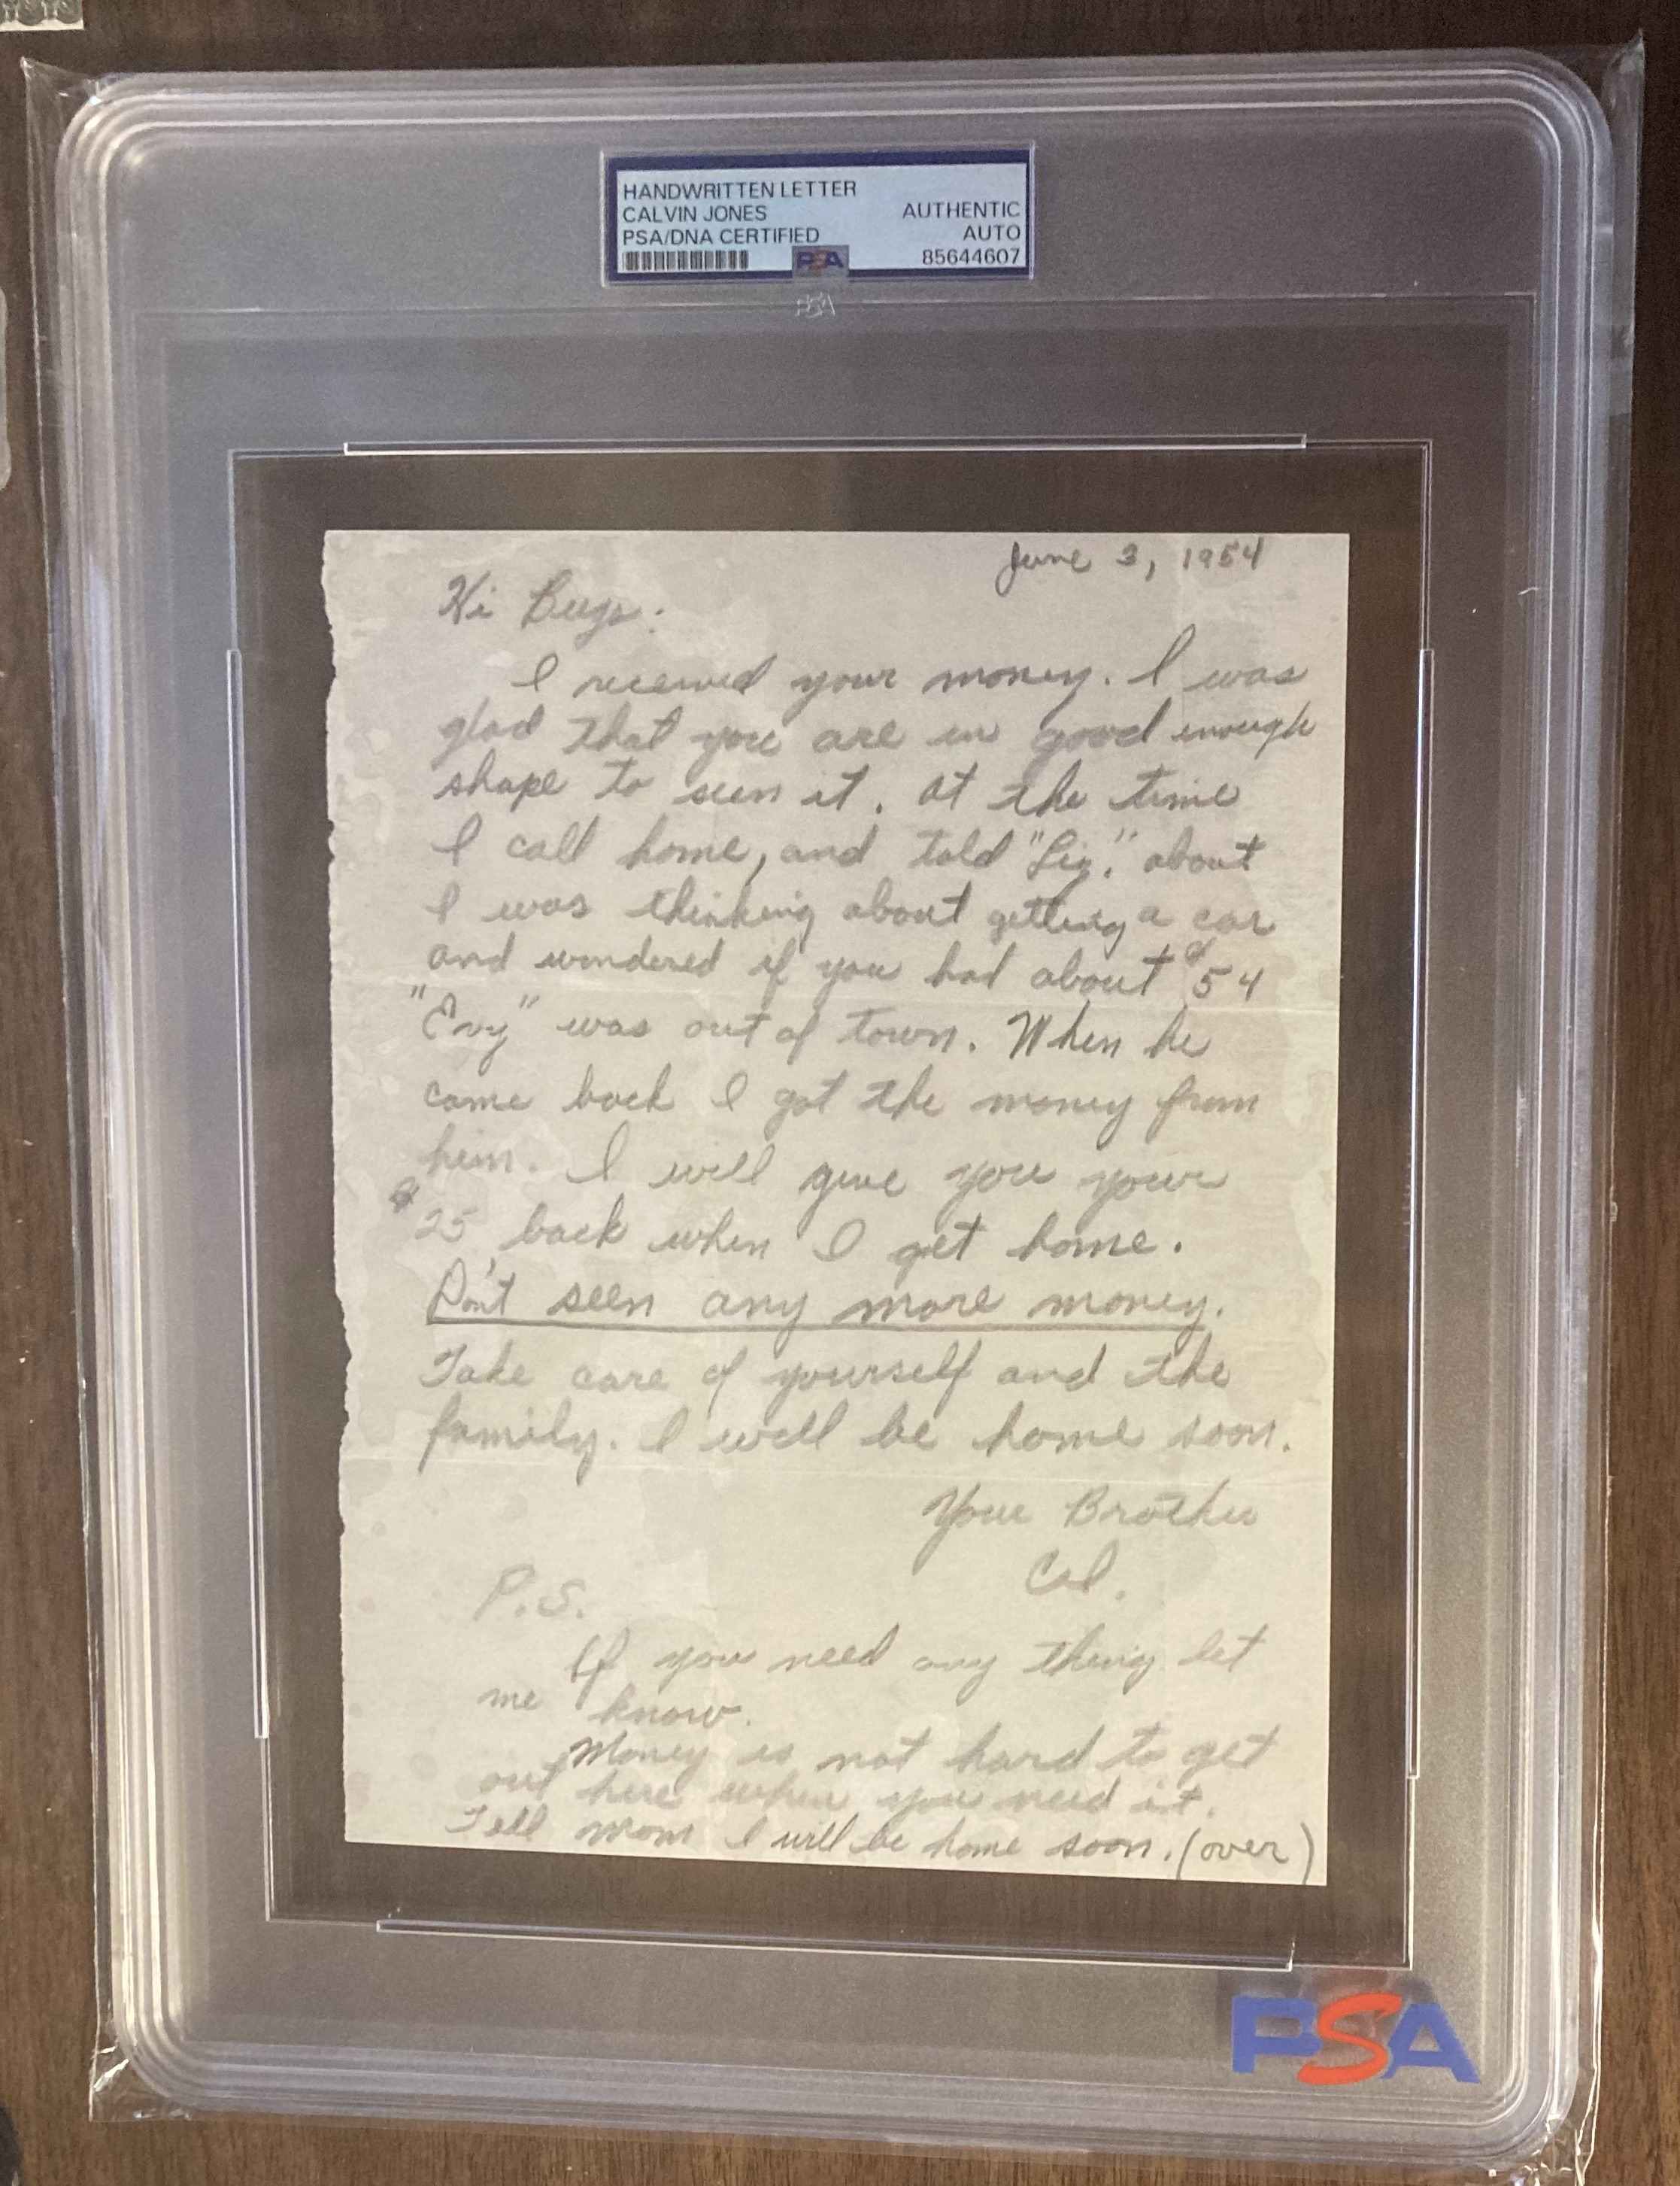 HANDWRITTEN LETTER
CALVIN JONES AUTHENTIC
PSA/DNA CERTIFIED AUTO
PSA 85644607
PSA
June 3, 1954
Hi Bugs:
I received your money. I was
glad that you are in good enough
shape to seen it. At the time
I call home, and told "Liz." about
I was thinking about getting a car
and wondered if you had about $54
"Envy" was out of town. When he
came back I got the money from
him. I will give you your
$25 back when I get home.
Don't seen any more money.
Take care of yourself and the
family. I will be home soon.
Your Brother
Cal.
P.S.
If you need any thing let
me know.
Money is not hard to get
out here when you need it.
Tell mom I will be home soon. (over)
PSA